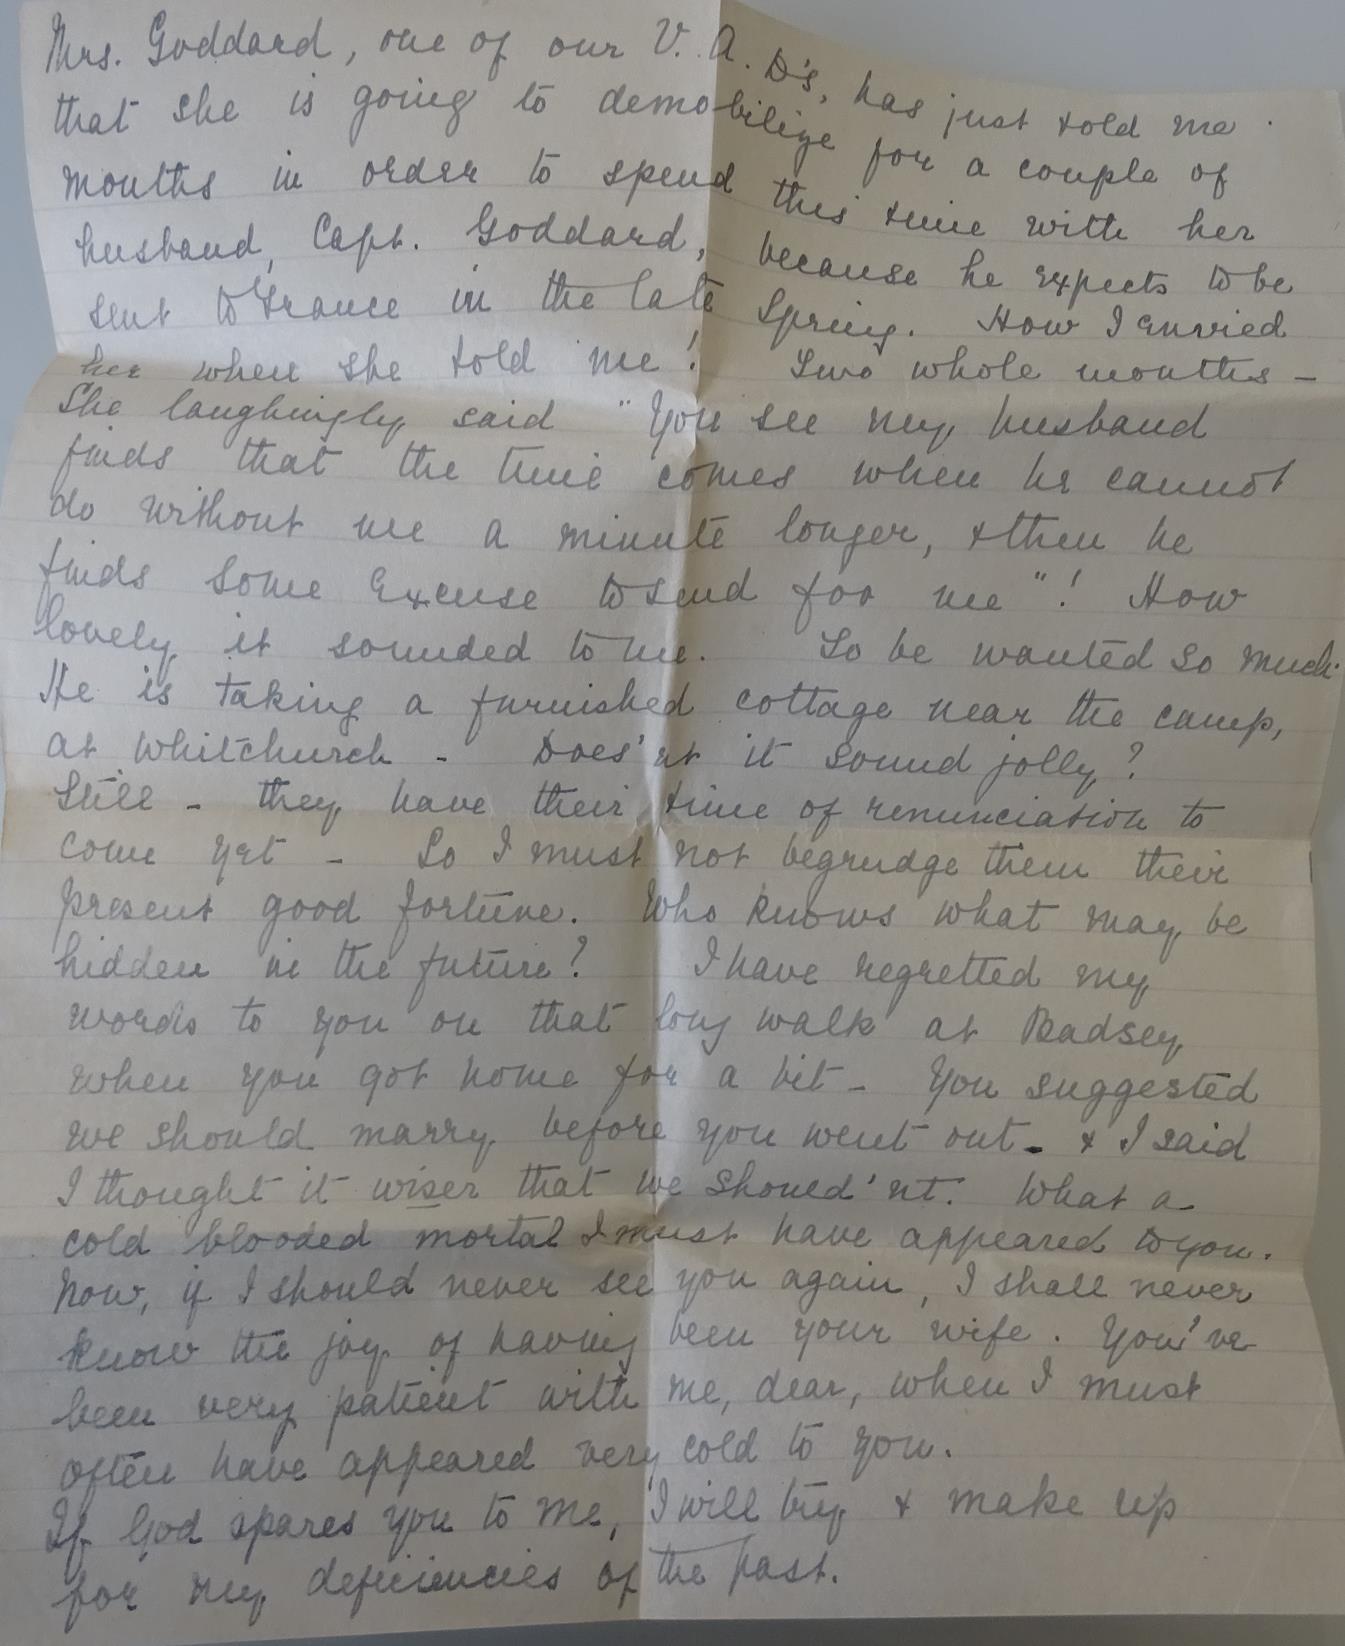 Mrs. Goddard, one of our V. A. D's, has just told me
that she is going to demobilize for a couple of
months in order to spend this time with her
husband, Capt. Goddard, because he expects to be
sent to France in the late Spring. How I envied
her when she told me! Two whole months -
She laughingly said "You see my husband
finds that the time comes when he cannot
do without me a minute longer, & then he
finds some excuse to send for me"! How
lovely it sounded to me. To be wanted so much.
He is taking a furnished cottage near the camp,
at Whitchurch - Does'nt it sound jolly?
Still - they have their time of renunciation to
come yet - So I must not begrudge them their
present good fortune. Who knows what may be
hidden in the future? I have regretted my
words to you on that long walk at Badsey
when you got home for a bit - You suggested
we should marry before you went out - & I said
I thought it wiser that we should'nt. What a
cold blooded mortal I must have appeared to you.
Now, if I should never see you again, I shall never
know the joy of having been your wife. You've
been very patient with me, dear, when I must
often have appeared very cold to you.
If God spares you to me, I will try & make up
for my deficiencies of the past.